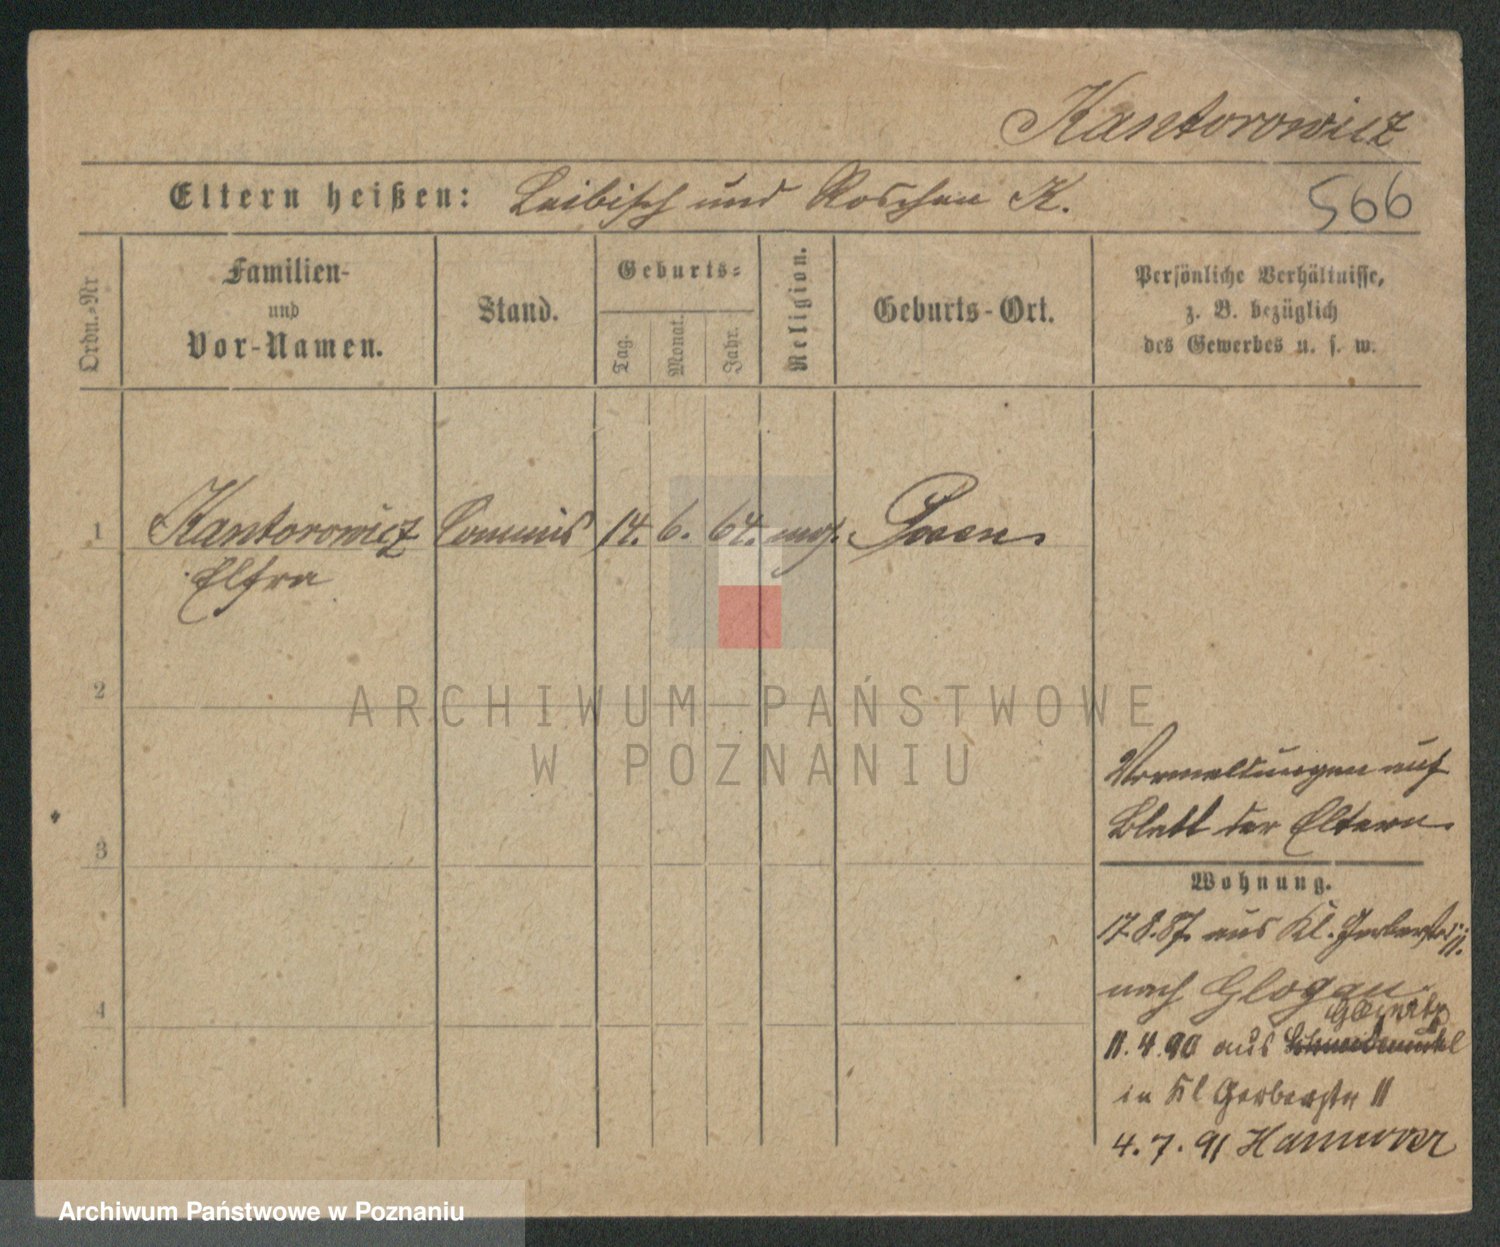 Kantorowicz
Eltern heißen: Leibisch und Roschen K.
566
Ordn.-Nr
Familien-
und
Vor-Namen.
Stand.
Geburts-
Tag.
Monat.
Jahr.
Religion.
Geburts-Ort.
Persönliche Verhältnisse,
z. B. bezüglich
des Gewerbes u. s. w.
1 Kantorowicz Commis 14. 6. 64. mos. Posen.
2
3
4
ARCHIWUM PAŃSTWOWE
W POZNANIU
Vormeldungen auf
Blatt der Eltern.
Wohnung.
17.8.87. aus Kl. Gerberstr. 11.
nach Glogau.
11.4.90 aus
in Kl Gerberstr 11
4.7.91 Hannover
Archiwum Państwowe w Poznaniu